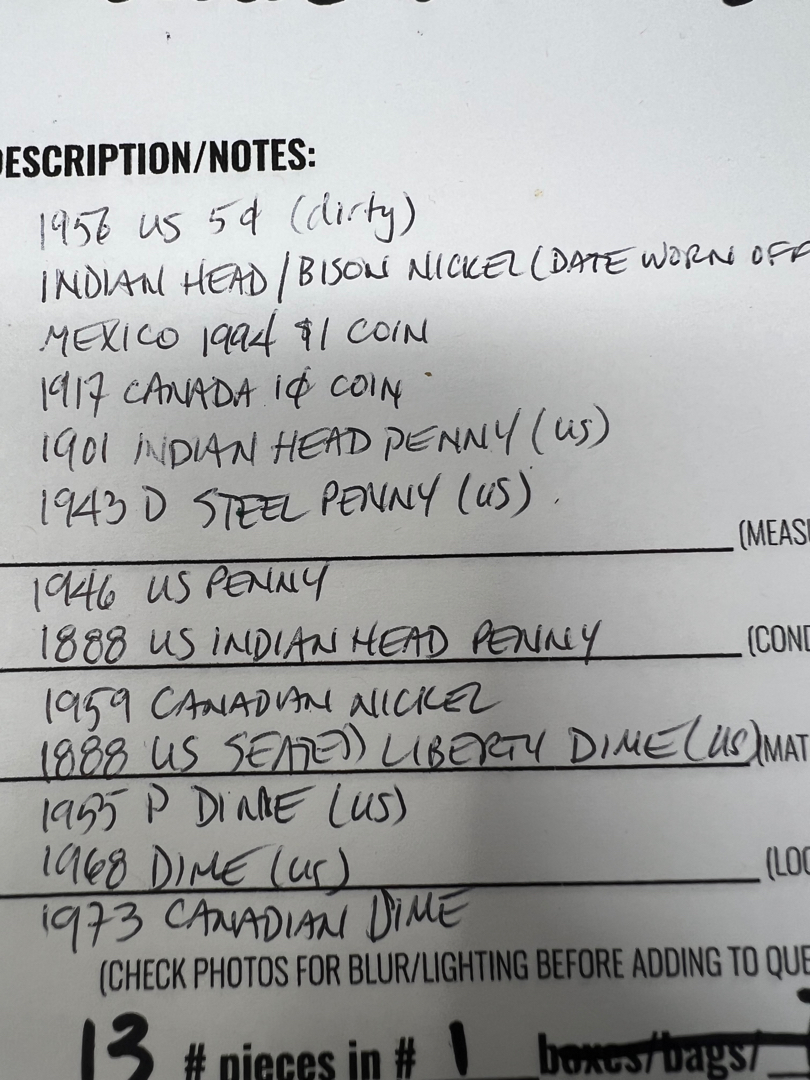 DESCRIPTION/NOTES:
1956 US 5¢ (dirty)
INDIAN HEAD/BISON NICKEL (DATE WORN OFF
MEXICO 1994 $1 COIN
1917 CANADA 1¢ COIN
1901 INDIAN HEAD PENNY (US)
1943 D STEEL PENNY (US)
(MEAS
1946 US PENNY
1888 US INDIAN HEAD PENNY (COND
1959 CANADIAN NICKEL
1888 US SEATED LIBERTY DIME (US) (MAT
1955 P DIME (US)
1968 DIME (US) (LOC
1973 CANADIAN DIME
(CHECK PHOTOS FOR BLUR/LIGHTING BEFORE ADDING TO QUE
13 # pieces in # 1 boxes/bags/